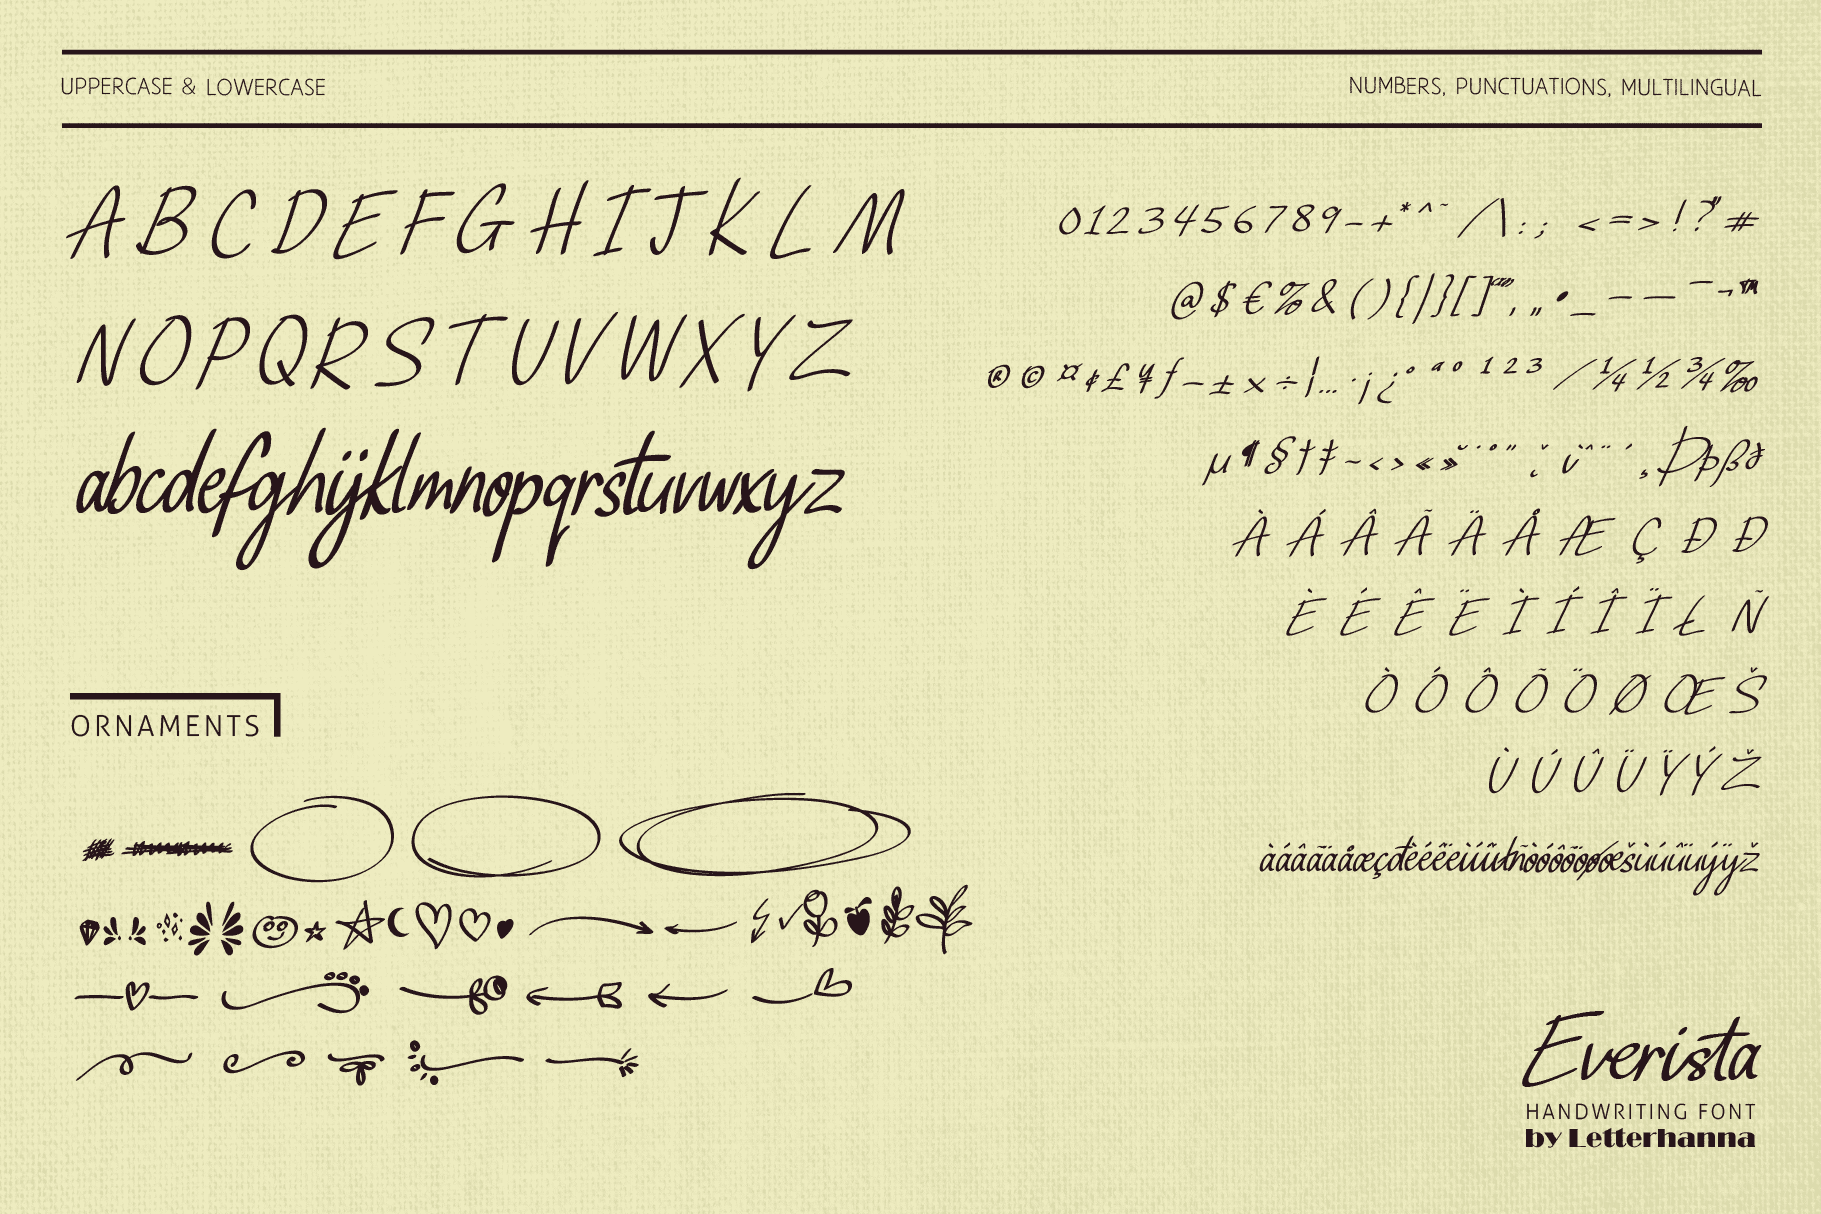 UPPERCASE & LOWERCASE
NUMBERS, PUNCTUATIONS, MULTILINGUAL
A B C D E F G H I J K L M
N O P Q R S T U V W X Y Z
abcdefghijklmnopqrstuvwxyz
0 1 2 3 4 5 6 7 8 9 - + * ^ ~ / \ : ; < = > ! ? " #
@ $ € % & ( ) { | } [ ] , „ • _ – — ¯ ¬ ™
® © ¤ ¢ £ ¥ ƒ – ± × ÷ ¦ … · ¡ ¿ ° ª º ¹ ² ³ ⁄ ¼ ½ ¾ ‰
µ ¶ § † ‡ ~ ‹ › « » ˘ ˙ ˚ ˝ ˇ ˆ ¨ ´ ¸ Þ þ ß ð
À Á Â Ã Ä Å Æ Ç Ð Đ
È É Ê Ë Ì Í Î Ï Ł Ñ
Ò Ó Ô Õ Ö Ø Œ Š
Ù Ú Û Ü Ÿ Ý Ž
àáâãäåæçđèéêëìíîïłñòóôõöøœšùúûüýÿž
ORNAMENTS
Everista
HANDWRITING FONT
by Letterhanna